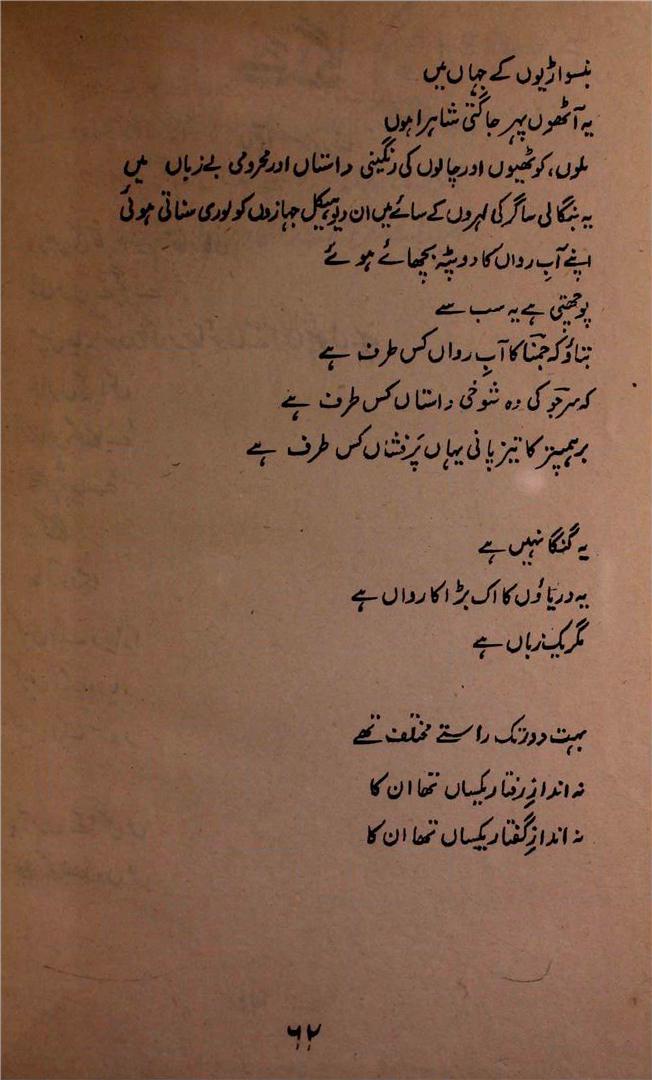 بنسواڑیوں کے جہاں میں
یہ آٹھوں پہر جاگتی شاہراہوں
ملوں، کوٹھیوں اور چالوں کی رنگینی داستاں اور محرومی بے زباں میں
یہ بنگالی ساگر کی لہروں کے سائے میں ان دیو ہیکل جہازوں کو لوری سناتی ہوئی
اپنے آبِ رواں کا دوپٹہ بچھائے ہوئے
پوچھتی ہے یہ سب سے
بتاؤ کہ جمنا کا آبِ رواں کس طرف ہے
کہ سرجو کی وہ شوخی داستاں کس طرف ہے
برہمپتر کا تیز پانی یہاں پَر فشاں کس طرف ہے
یہ گنگا نہیں ہے
یہ دریاؤں کا اک بڑا کارواں ہے
مگر یک زباں ہے
بہت دور تک راستے مختلف تھے
نہ اندازِ رفتار یکساں تھا ان کا
نہ اندازِ گفتار یکساں تھا ان کا
۶۲